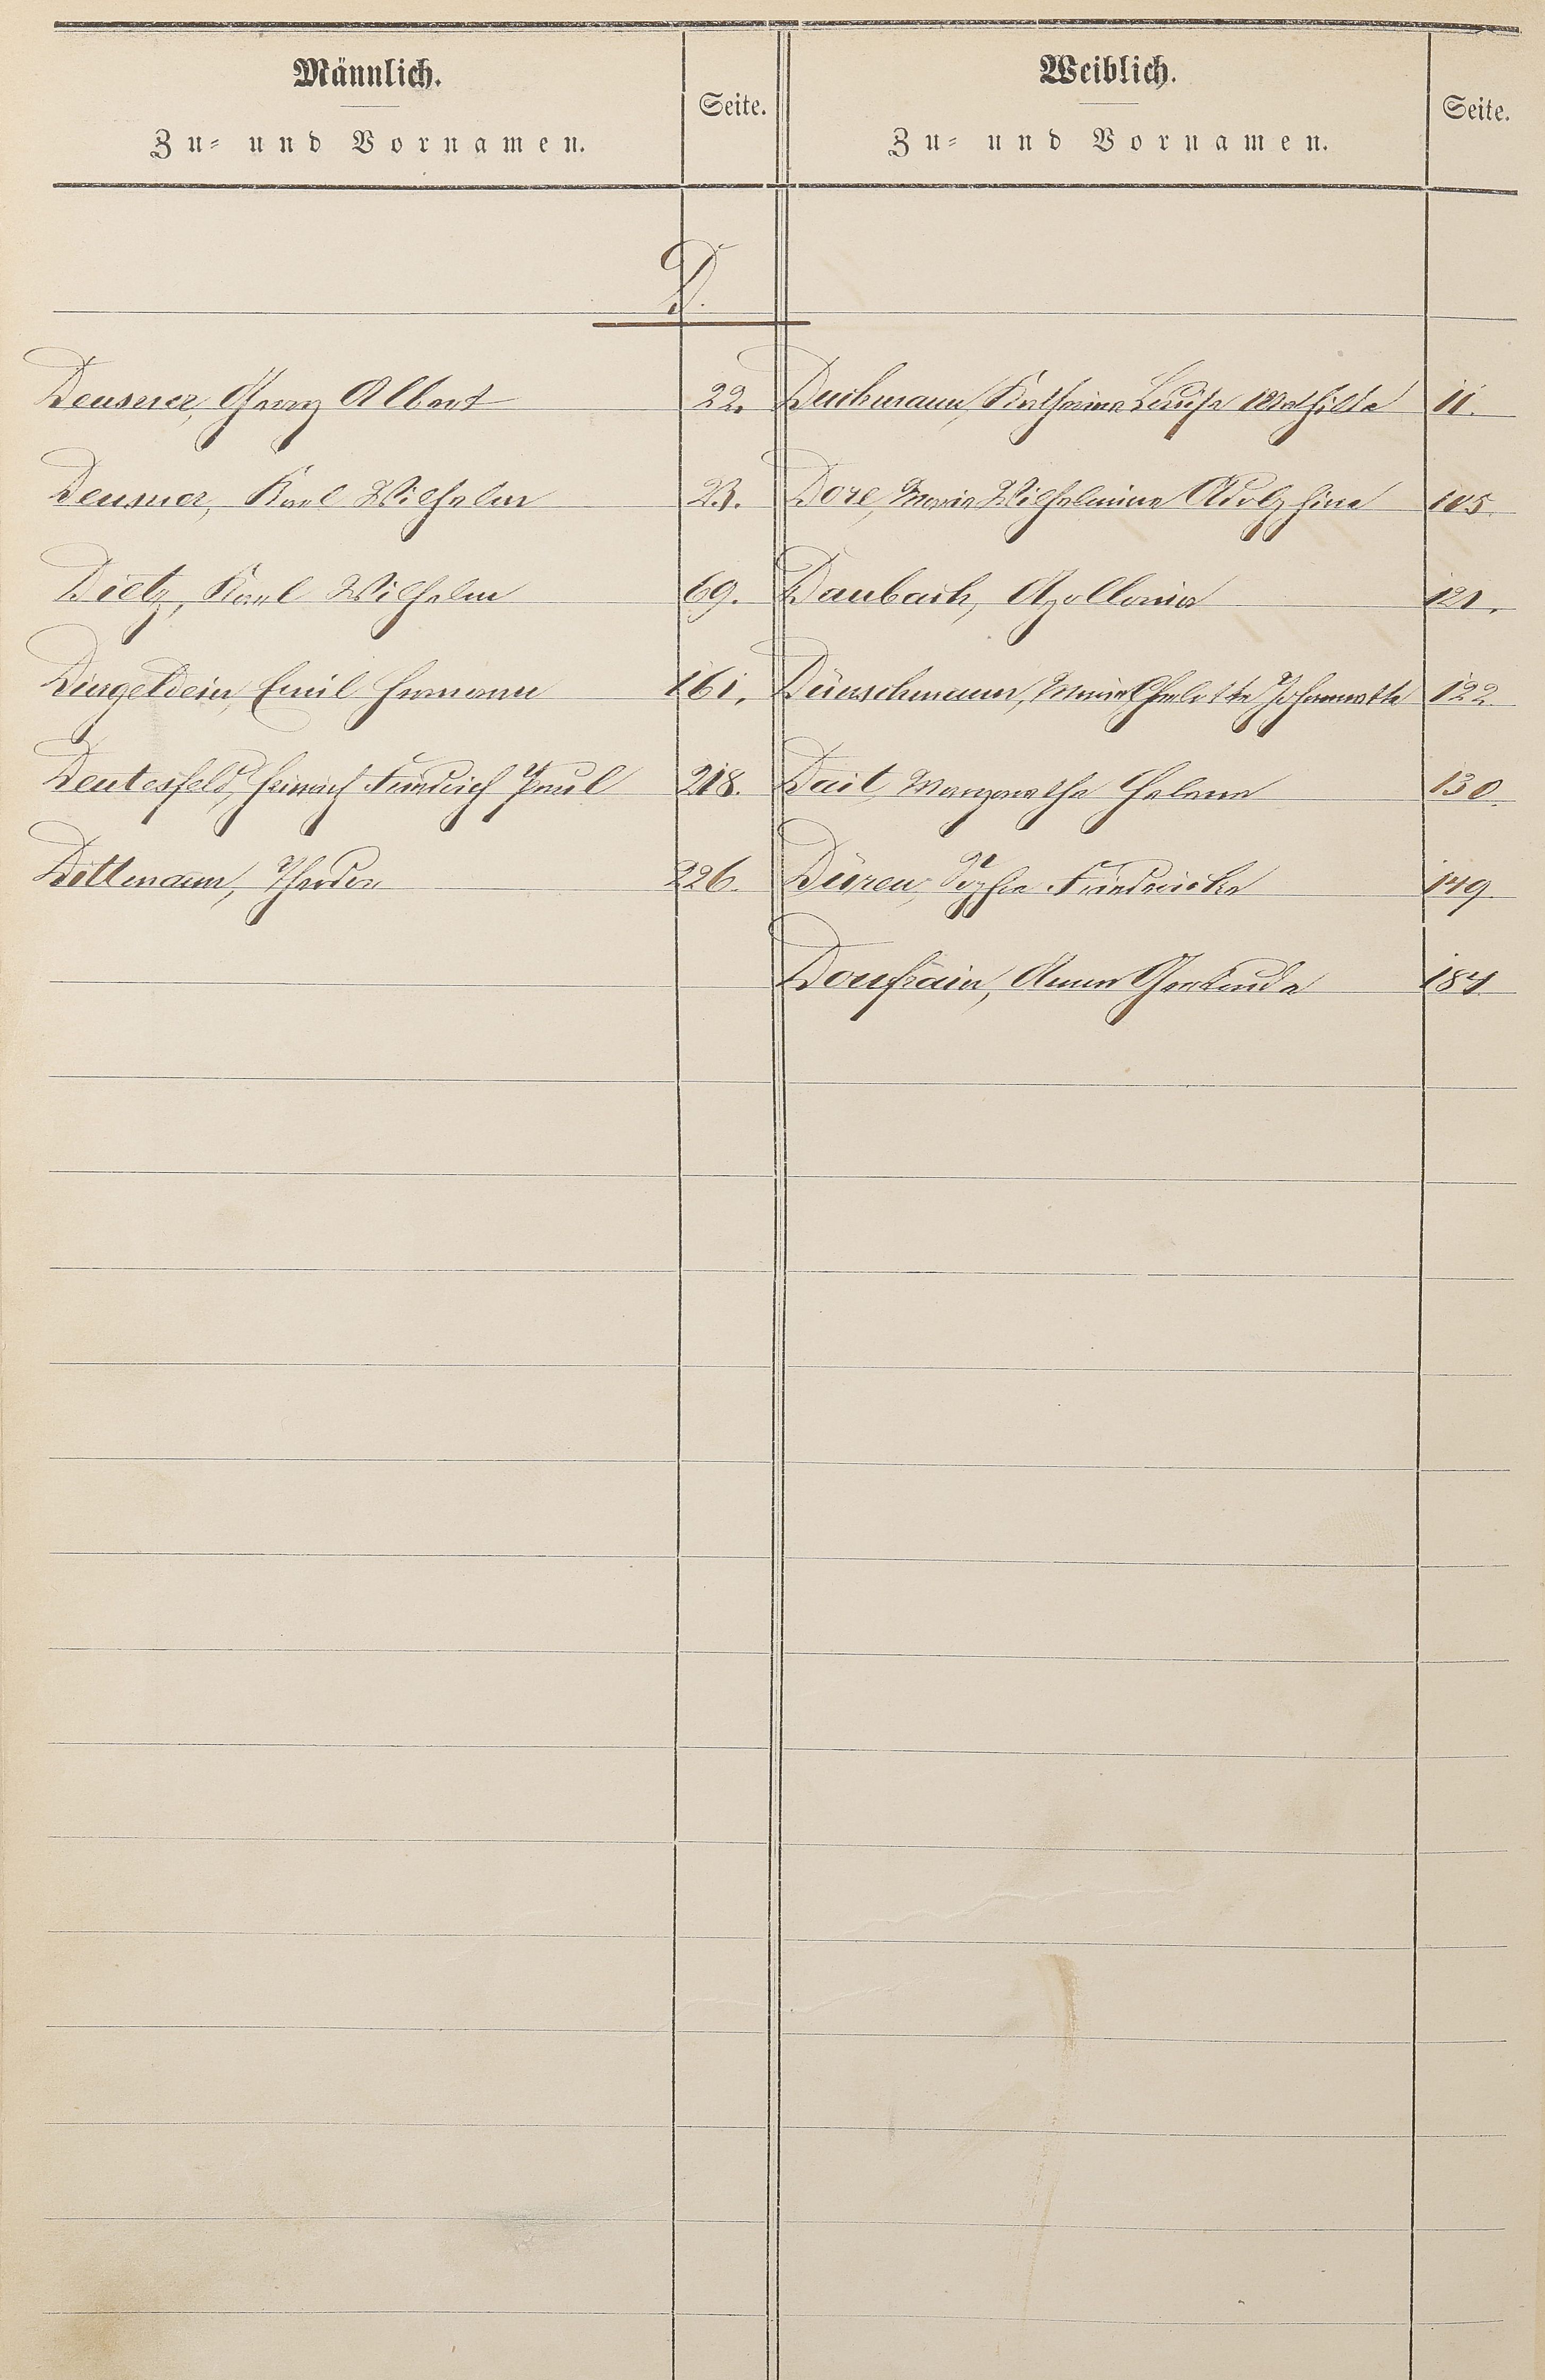 Männlich.
Zu- und Vornamen.
Seite.
Weiblich.
Zu- und Vornamen.
Seite.
D.
Deusner, Georg Albert 22. Deichmann, Katharina Louise Mathilde 11.
Deusner, Karl Wilhelm 23. Dore, Maria Wilhelmine Adolphine 105.
Dietz, Karl Wilhelm 69. Daubach, Apollonia 121.
Dingeldein, Emil Hermann 161. Dünschmann, Maria Charlotte Johannette 122.
Deutesfeld, Heinrich Friedrich Paul 218. Dait, Margaretha Helena 130.
Dittmann, Theodor 226. Düren, Sophie Friedericke 149.
Doufrain, Anna Gertrude 184.